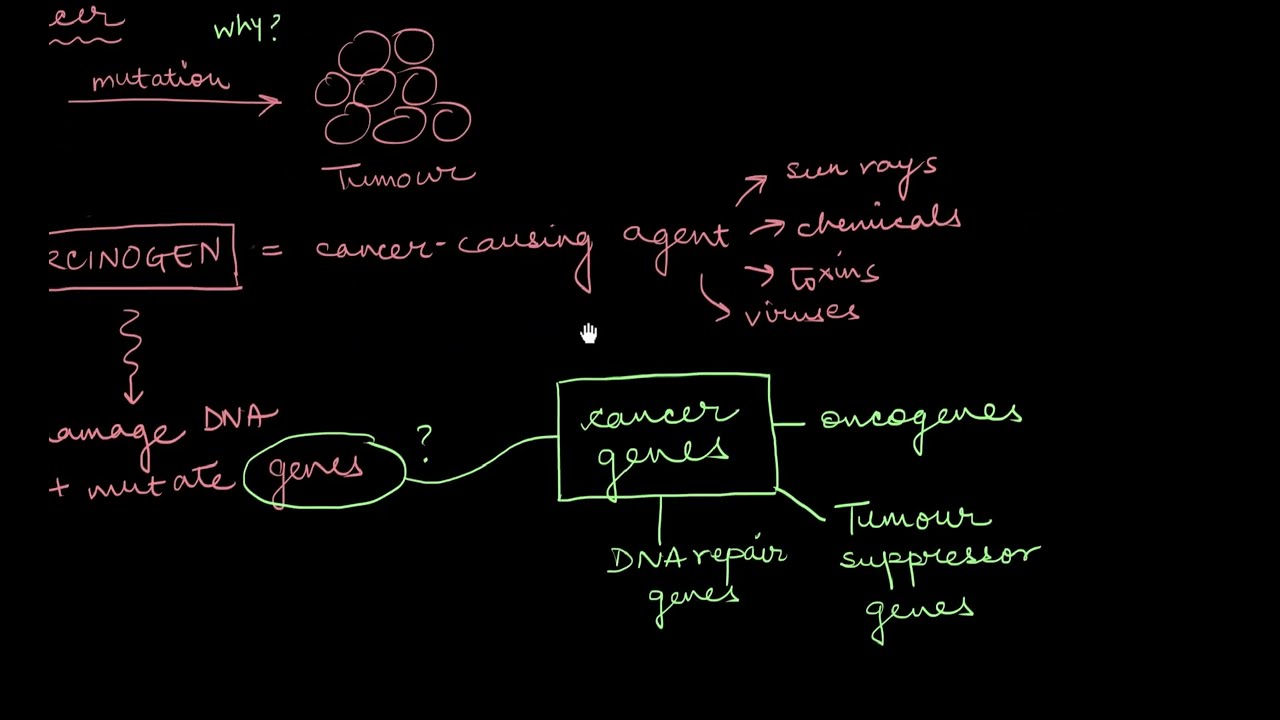 cer
why?
mutation
Tumour
RCINOGEN = cancer-causing agent
sun rays
chemicals
toxins
viruses
amage DNA
+ mutate genes ?
cancer
genes
oncogenes
Tumour
suppressor
genes
DNA repair
genes